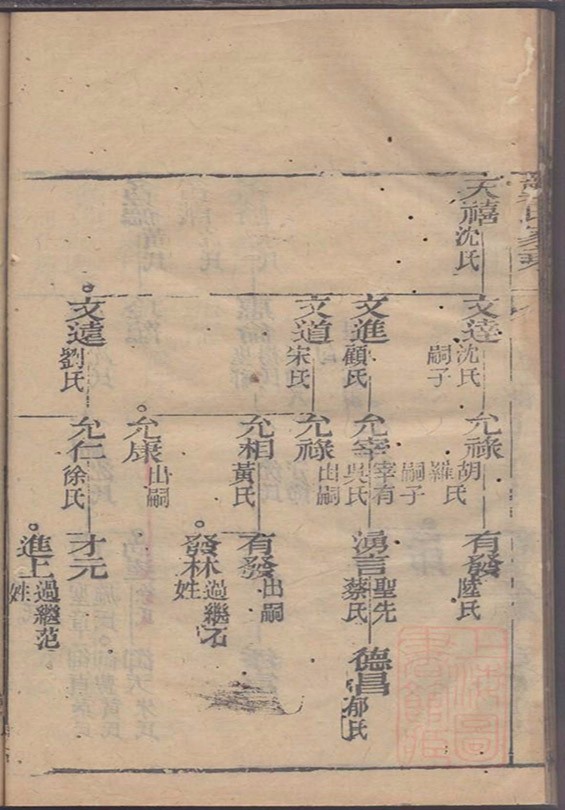 天禧 沈氏
文逵 沈氏 嗣子
文進 顧氏
文道 宋氏
文遠 劉氏
允祿 胡氏 羅氏
允宰 宰有嗣子 吳氏
允祿 出嗣
允相 黃氏
允康 出嗣
允仁 徐氏
有發 陸氏
湧言 聖先 蔡氏
有發 出嗣
發林 過繼石姓
才元
進上 過繼范姓
德昌 郁氏